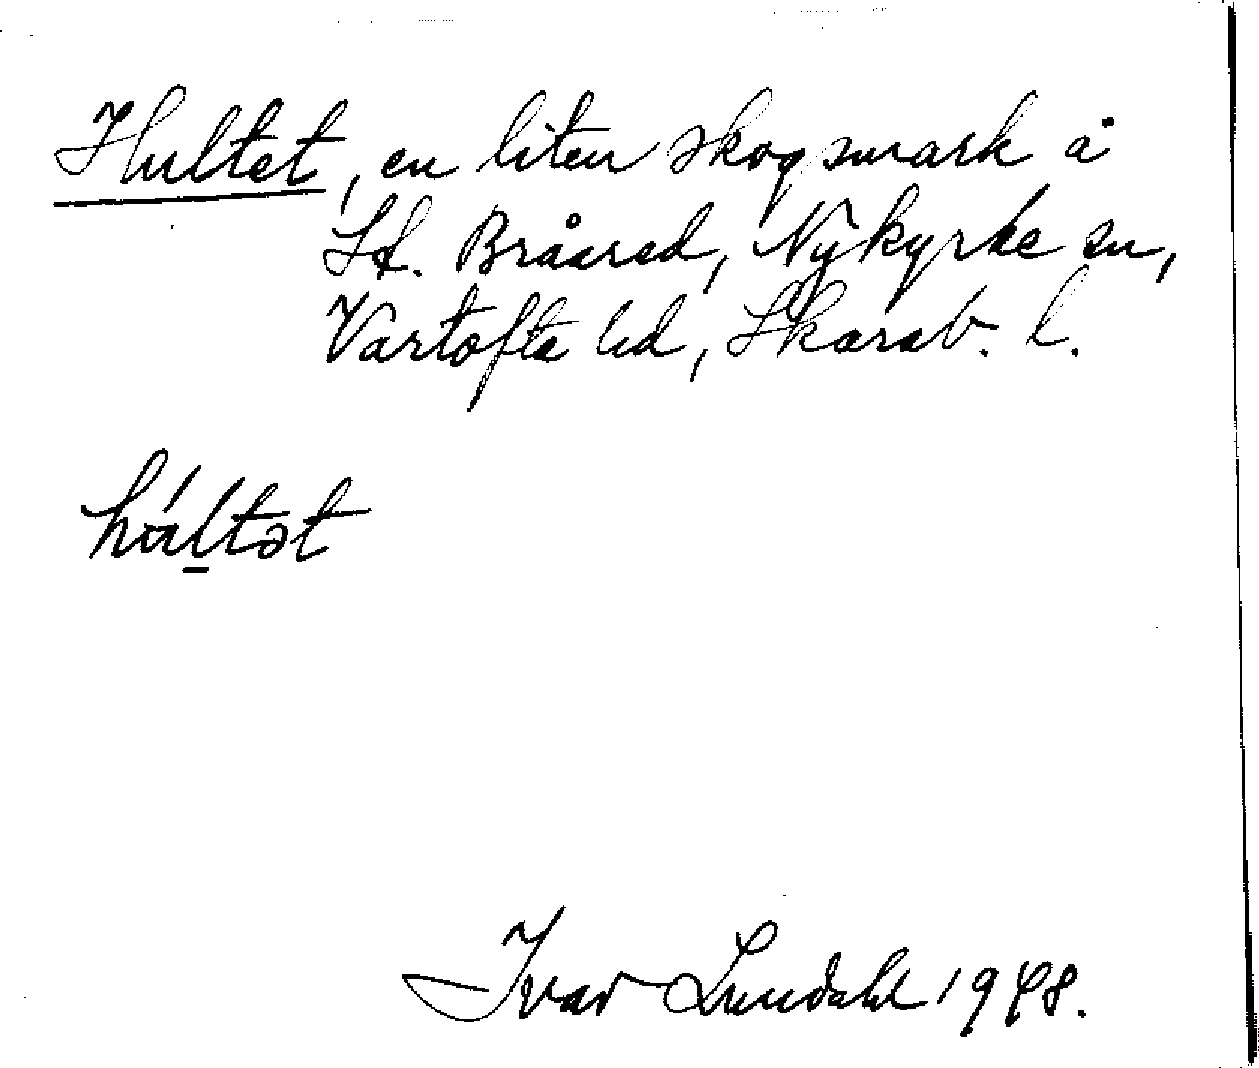 Hultet, en liten skogsmark å
St. Bråared, Nykyrke sn,
Vartofta hd, Skarab. l.
háltət
Ivar Lundahl 1948.